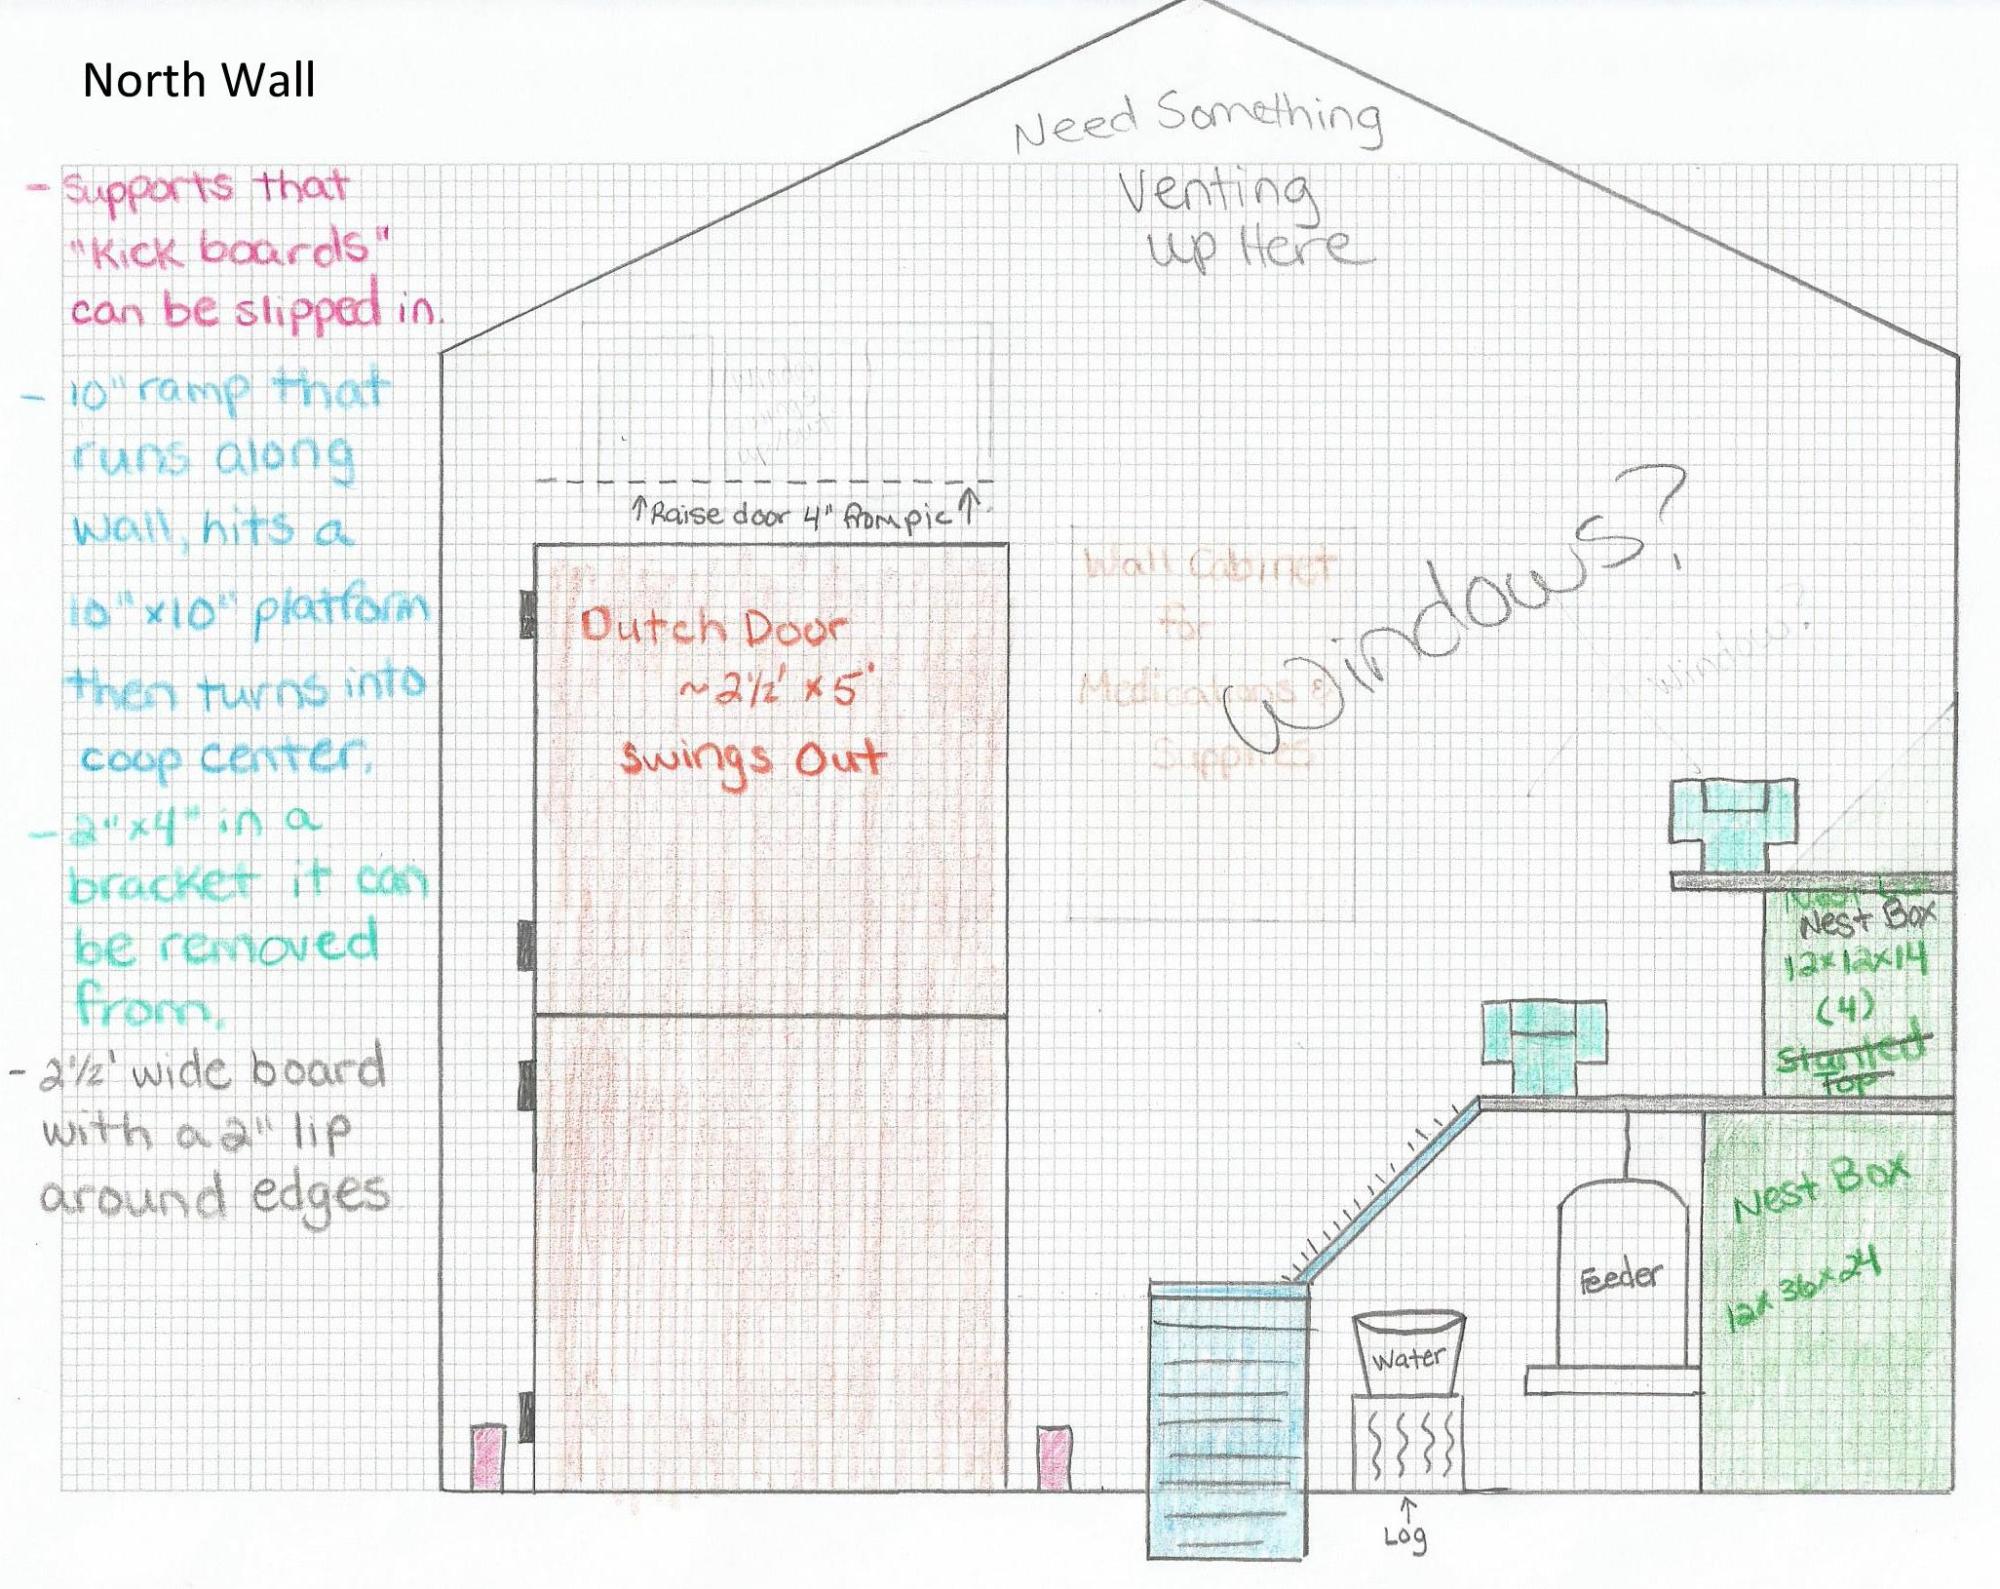 North Wall
- Supports that
"Kick boards"
can be slipped in.
- 10" ramp that
runs along
wall, hits a
10"x10" platform
then turns into
coop center.
- 2"x4" in a
bracket it can
be removed
from.
- 2½' wide board
with a 2" lip
around edges
Need Something
Venting
up Here
↑Raise door 4" from pic↑
Dutch Door
~2½' x 5'
swings Out
Wall Cabinet
for
Medications &
Supplies
Windows?
Window?
Nest Box
12x12x14
(4)
Slanted
Top
Nest Box
12x36x24
Feeder
Water
↑
Log